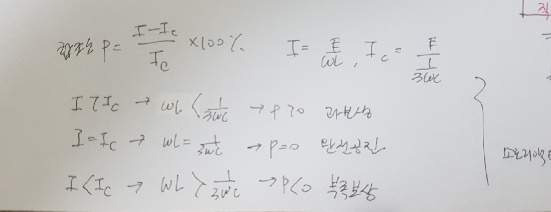 합조도 P = \frac{I - I_C}{I_C} × 100 %. I = \frac{E}{ωL}, I_C = \frac{E}{\frac{1}{3ωC}}
I > I_C → ωL < \frac{1}{3ωC} → P > 0 과보상
I = I_C → ωL = \frac{1}{3ωC} → P = 0 완전공진
I < I_C → ωL > \frac{1}{3ωC} → P < 0 부족보상